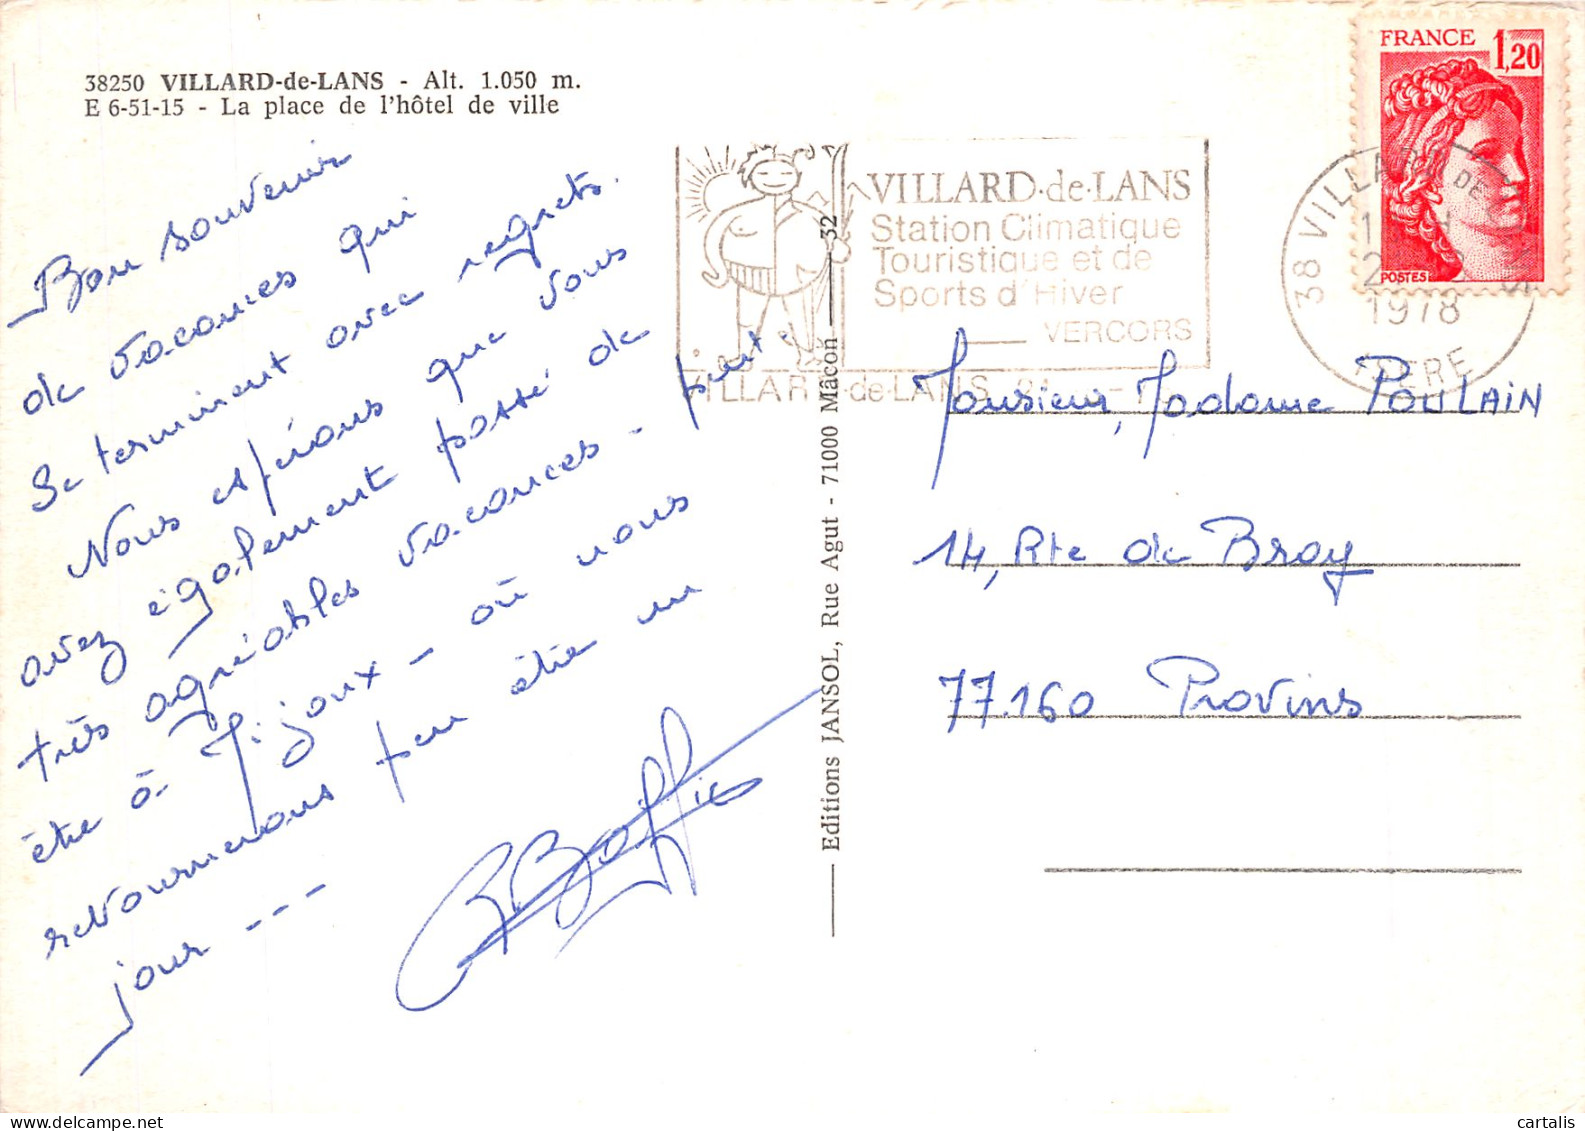 38250 VILLARD-de-LANS - Alt. 1.050 m.
E 6-51-15 - La place de l'hôtel de ville
Bon souvenir
de vacances qui
se terminent avec regrets.
Nous espérons que vous
avez également passé de
très agréables vacances - peut-
être à Mijoux - où nous
retournerons peut être un
jour ---
Editions JANSOL, Rue Agut - 71000 Mâcon
32
VILLARD-de-LANS
Station Climatique
Touristique et de
Sports d'Hiver
VERCORS
VILLARD-de-LANS
38 VILLARD DE LANS
1978
ISERE
FRANCE 1,20
POSTES
Monsieur, Madame POULAIN
14, Rte de Bray
77.160 Provins
cartalis